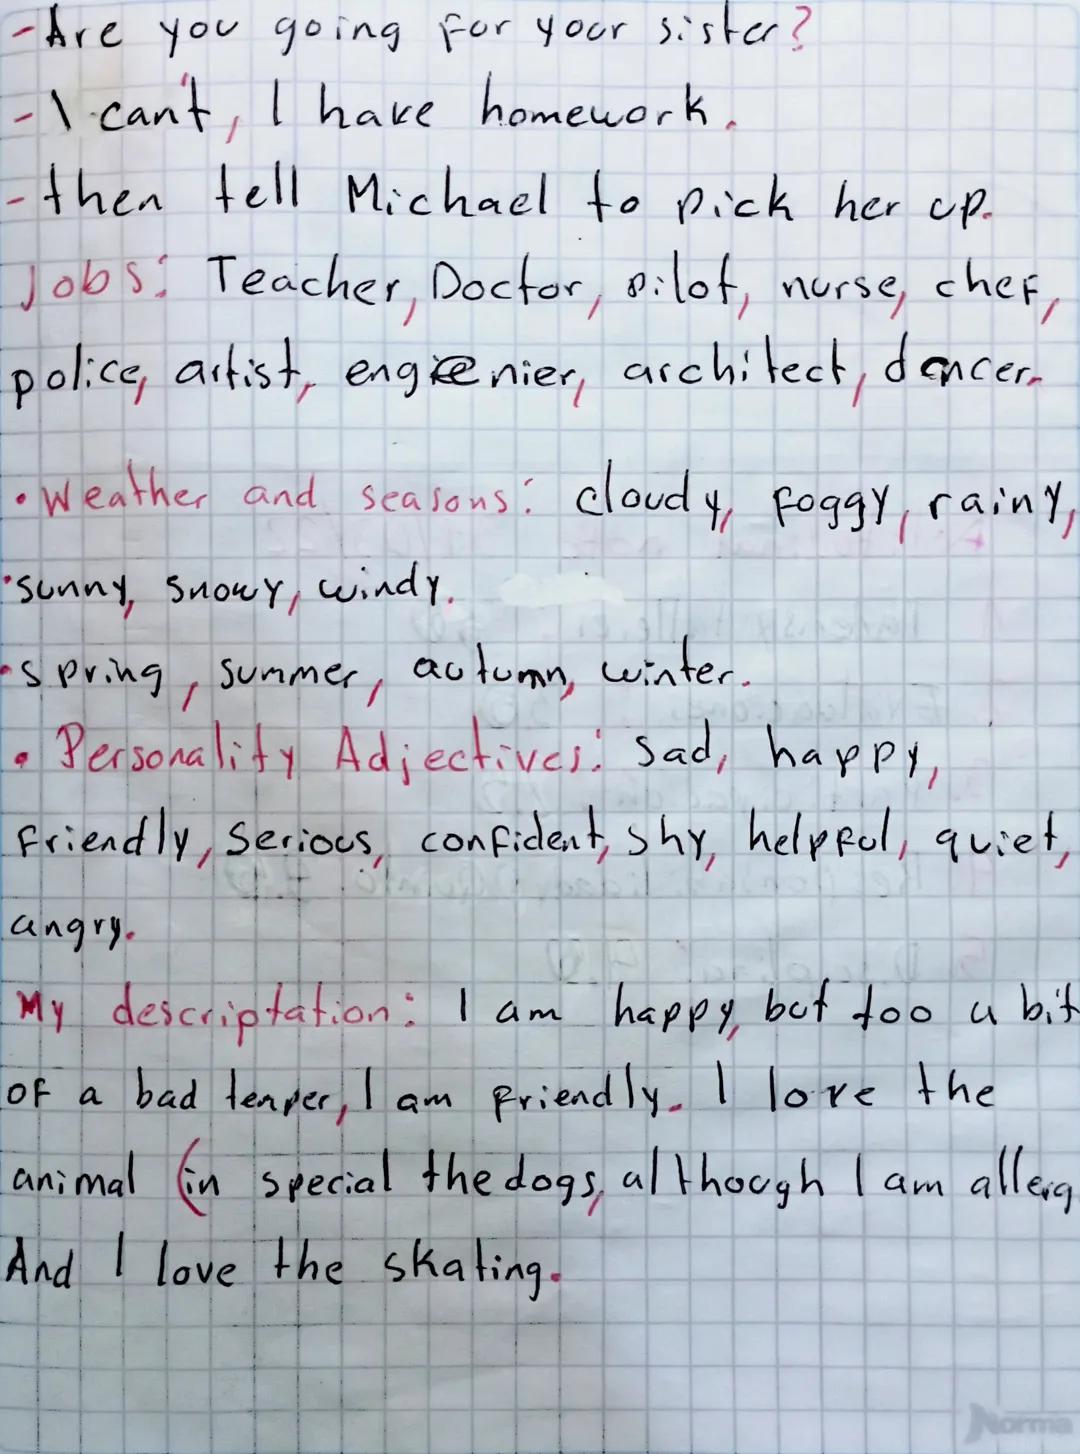 - Are you going for your sister?
- I can't, I have homework.
- then tell Michael to pick her up.
Jobs: Teacher, Doctor, pilot, nurse, chef,
police, artist, engienier, architect, dancer.
• Weather and seasons: cloudy, foggy, rainy,
• sunny, snowy, windy.
• spring, summer, autumn, winter.
• Personality Adjectives: sad, happy,
friendly, serious, confident, shy, helpful, quiet,
angry.
My descriptation: I am happy, but too a bit
of a bad temper, I am friendly. I love the
animal (in special the dogs, although I am allerg
And I love the skating.
Norma